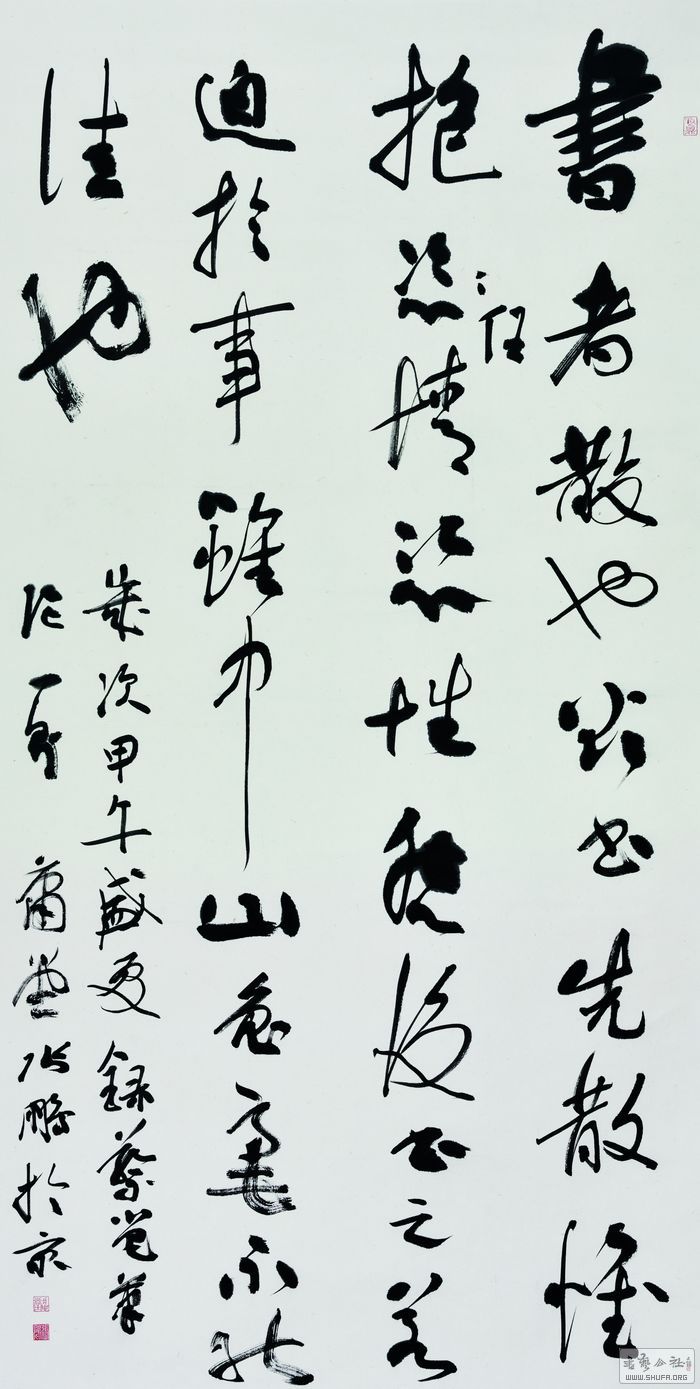 書者散也欲書先散懷
任
抱恣情恣性然後書之若
迫於事雖中山兔毫不能
佳也
歲次甲午盛夏錄蔡邕筆
論一 堂張鵬於京
書藝公社
WWW.SHUFA.ORG